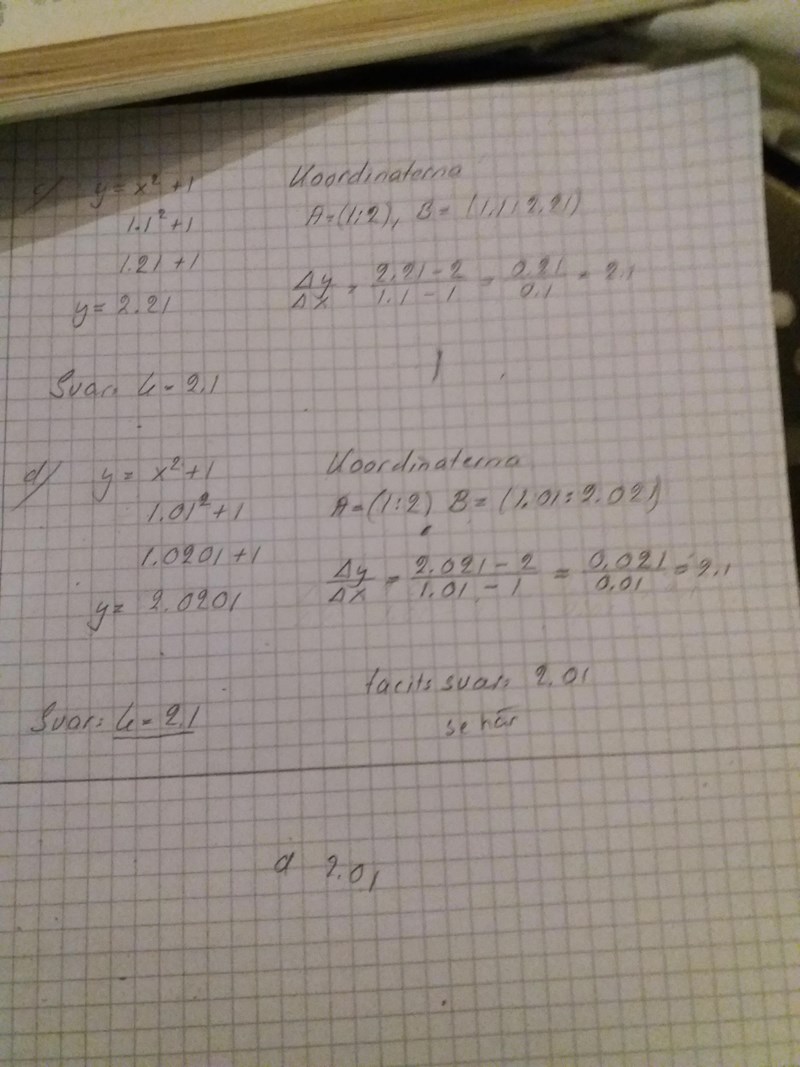 c) y = x² + 1
1.1² + 1
1.21 + 1
y = 2.21
Koordinaterna
A = (1:2), B = (1,1:2,21)
Δy/Δx = 2.21 - 2/1.1 - 1 = 0.21/0.1 = 2.1
Svar: k = 2.1
d) y = x² + 1
1.01² + 1
1.0201 + 1
y = 2.0201
Koordinaterna
A = (1:2) B = (1,01:2.021)
Δy/Δx = 2.021 - 2/1.01 - 1 = 0.021/0.01 = 2.1
facits svar: 2.01
se här
Svar: k = 2.1
d 2.01